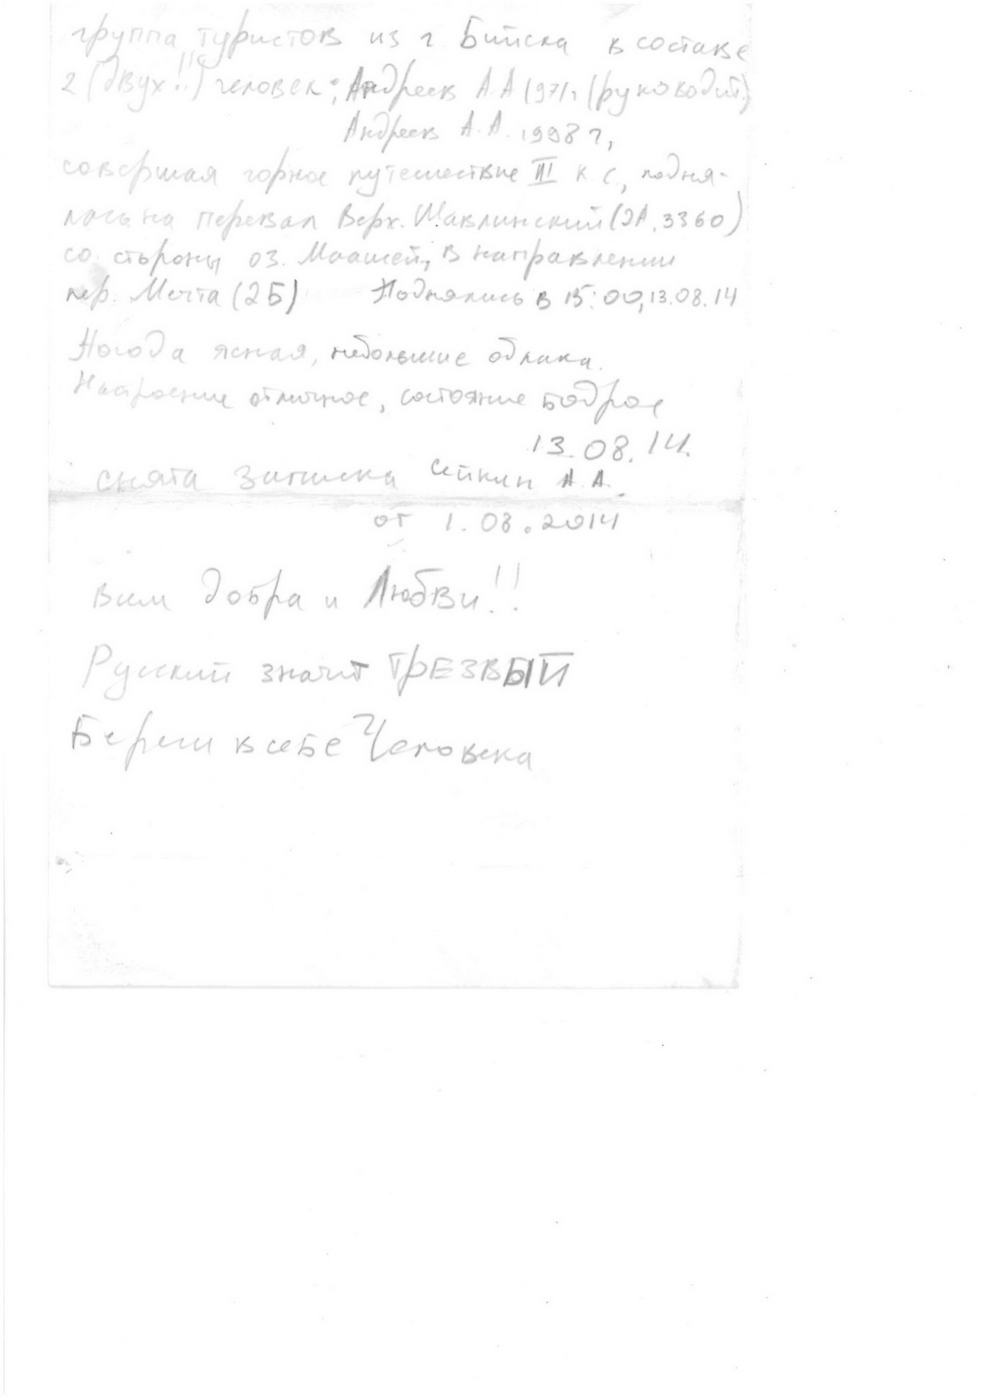 группа туристов из г Бийска в составе
2 (двух!!) человек: Андреев А А 1971г (руководит.)
Андреев А.А. 1998 г,
совершая горное путешествие III к.с, подня-
лась на перевал Верх. Шавлинский (2А, 3360)
со стороны оз. Маашей, в направлении
пер. Мечта (2Б) Поднялись в 15:00, 13.08.14
Погода ясная, небольшие облака.
Настроение отличное, состояние бодрое
13.08.14.
снята записка А.А.
от 1.08.2014
Вам добра и Любви!!
Русский значит ТРЕЗВЫЙ
Береги в себе Человека